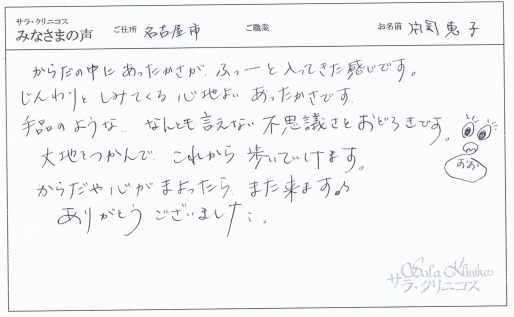 サラ・クリニコス
みなさまの声 ご住所 名古屋市 ご職業 お名前 恵子
からだの中に あったかさが、ふぅーと入ってきた感じです。
じんわりと しみてくる 心地よい あったかさです
手品のような、なんとも言えない 不思議さと おどろきです。
おお
大地をつかんで、これから 歩いていけます。
からだや心が まよったら、また来ます♪
ありがとう ございました。
Sala Klinikos
サラ・クリニコス